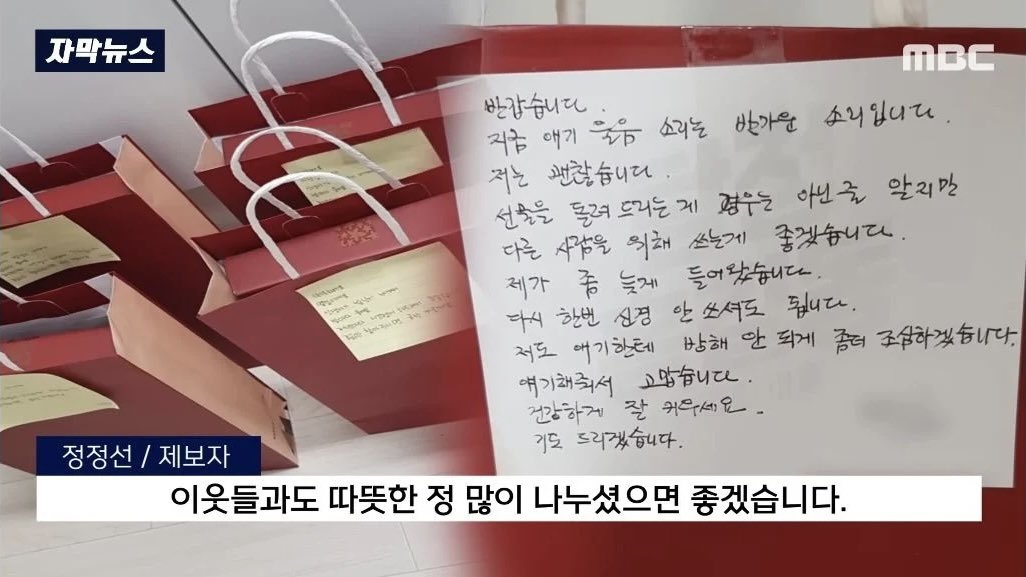 자막뉴스
MBC
반갑습니다.
지금 애기 울음 소리는 반가운 소리입니다.
저는 괜찮습니다.
선물을 돌려 드리는게 경우는 아닌 글 알지만
다른 사람을 위해 쓰는게 좋겠습니다.
제가 좀 늦게 들어왔습니다.
다시 한번 신경 안 쓰셔도 됩니다.
저도 애기한테 방해 안 되게 좀더 조심하겠습니다.
얘기해줘서 고맙습니다.
건강하게 잘 키우세요.
기도 드리겠습니다.
정정선 / 제보자
이웃들과도 따뜻한 정 많이 나누셨으면 좋겠습니다.